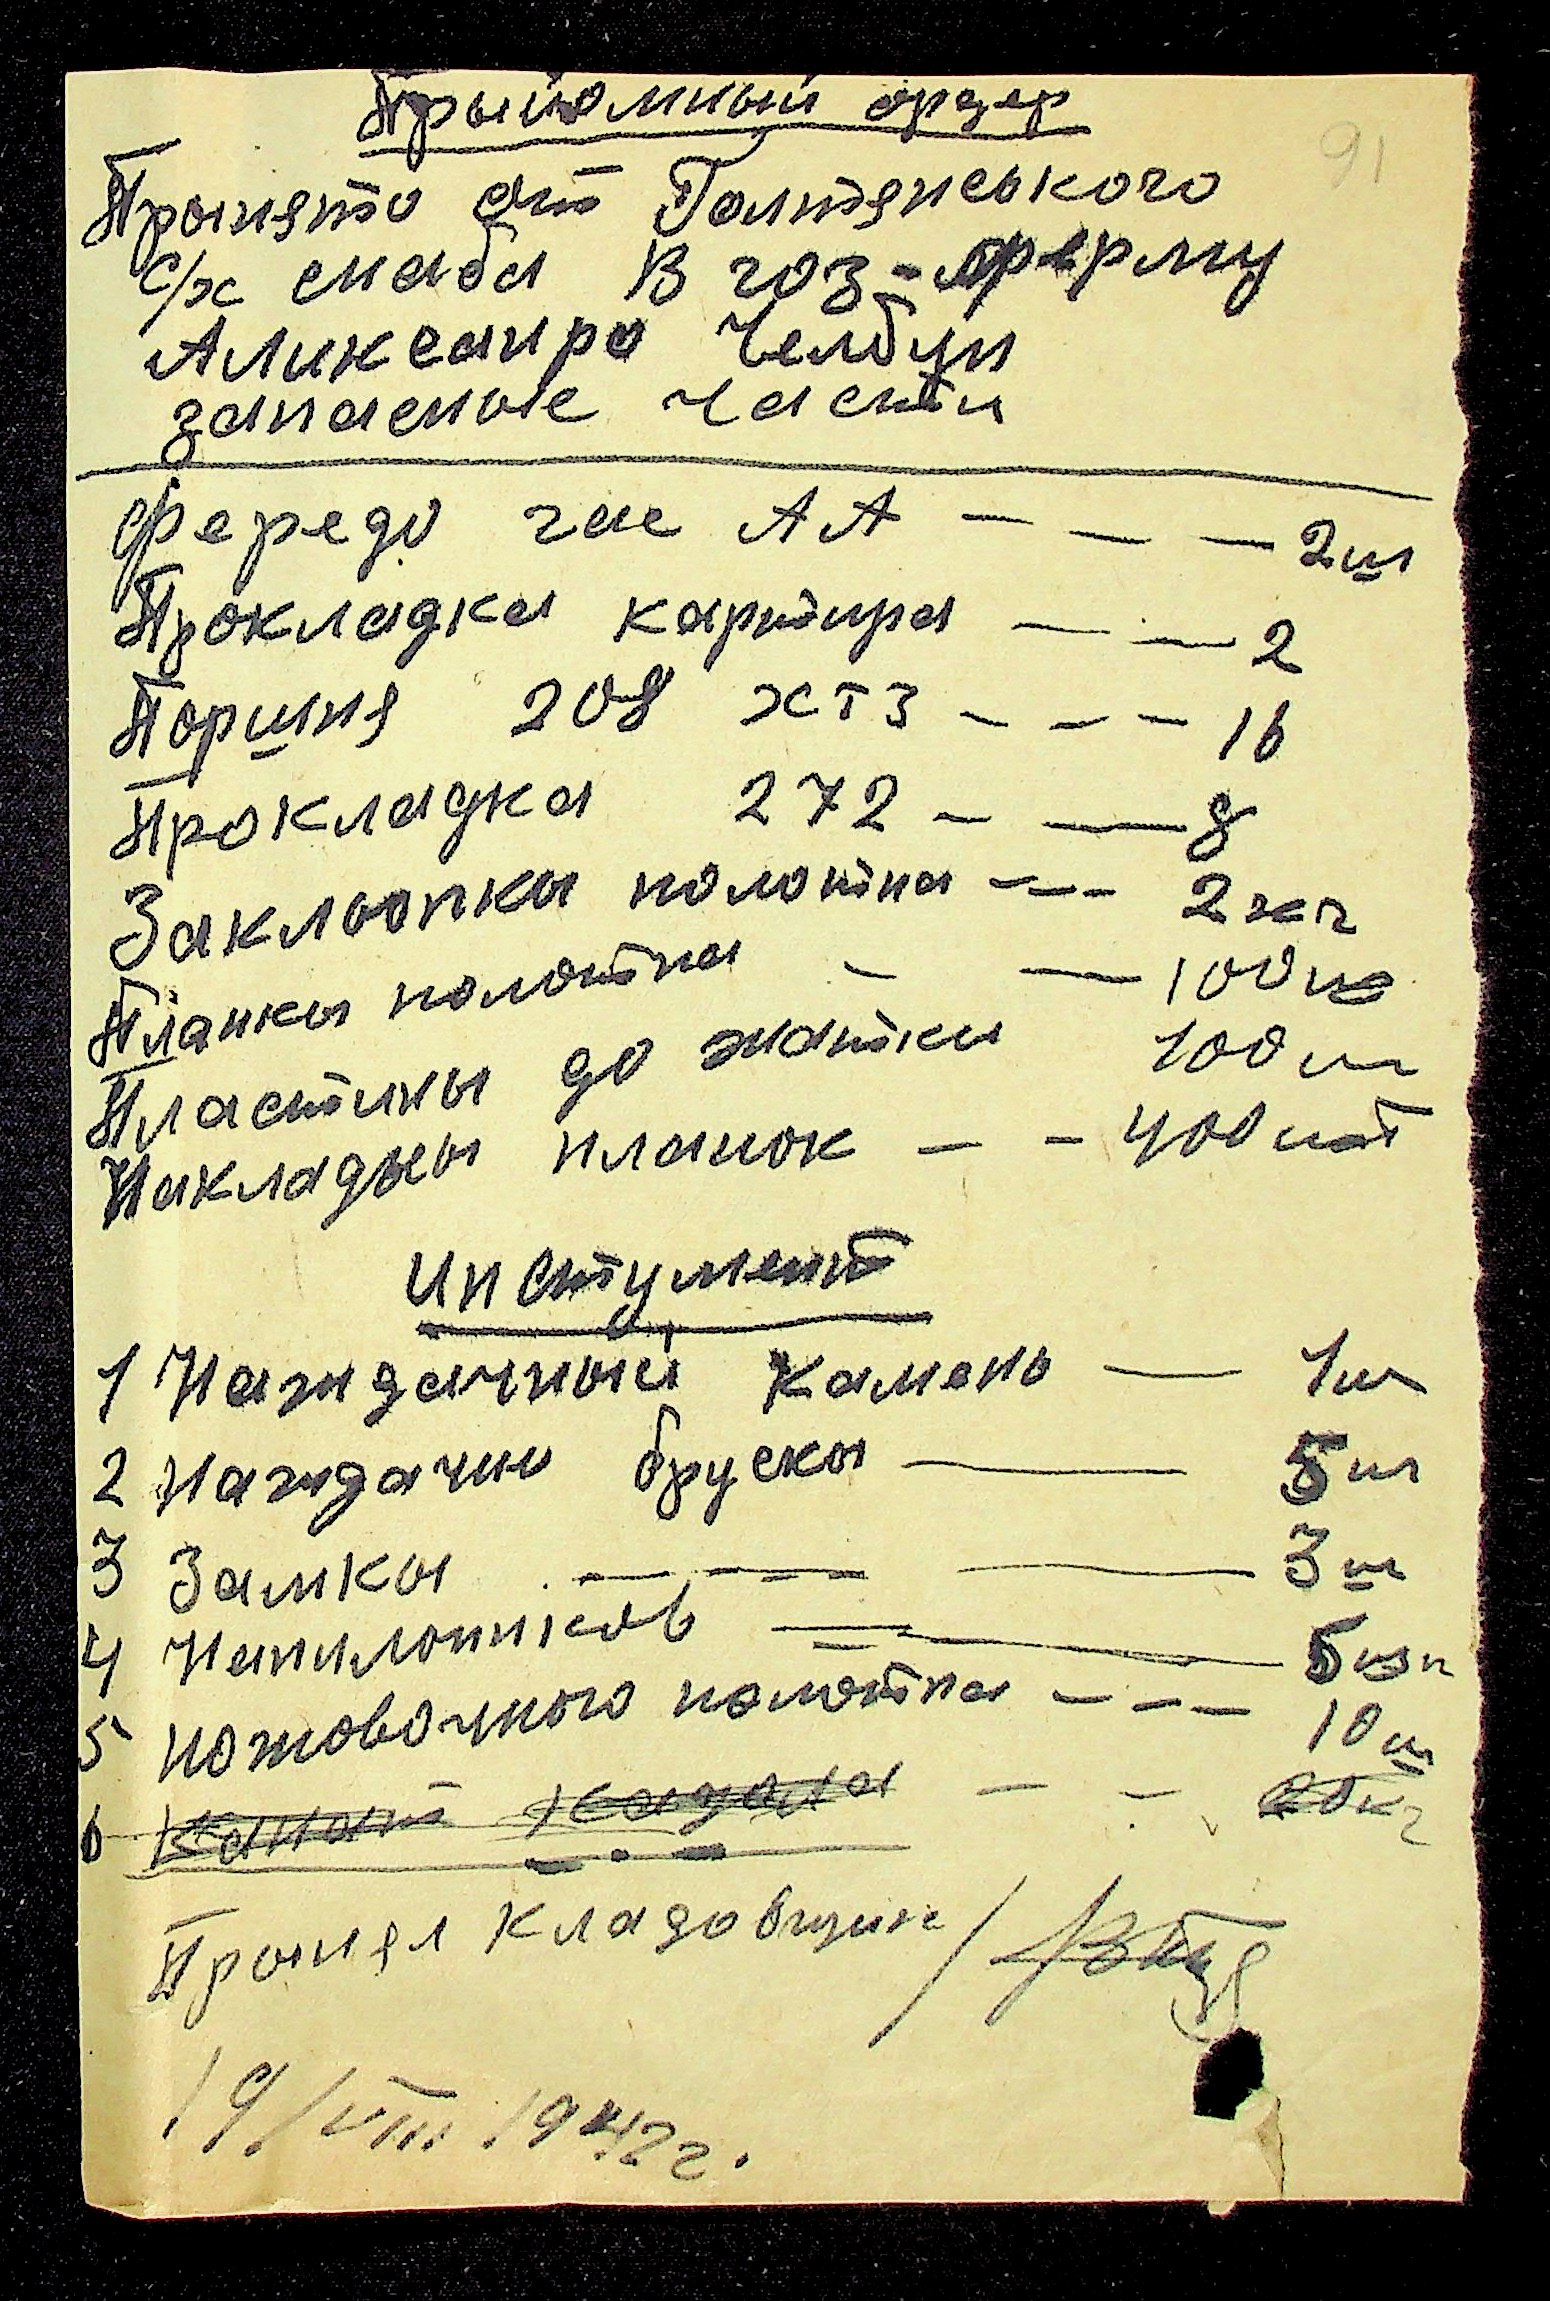 Прыйомный ордер
91
Прынято от Голтянського
с/х снаба в гоз-ферму
Аликсандро Челбун
запасные части
Фередо гас АА — — — 2ш
Прокладка картира — — 2
Поршня 208 ХТЗ — — — 16
Прокладка 272 — — 8
Закльопкы полотна — — 2кг
Планкы полотна — — 100ш
Пластины до жатки 100ш
Накладкы планок — — 400шт
Инстумент
1 Наждачный камень — 1ш
2 Наждачни брускы — 5ш
3 Замкы — — — 3ш
4 Напилонников — — 5
5 Ножовочного полотна — — — 10ш
6 Канат кадола — — 20кг
Принял кладовщик /
19/VIII 1942г.